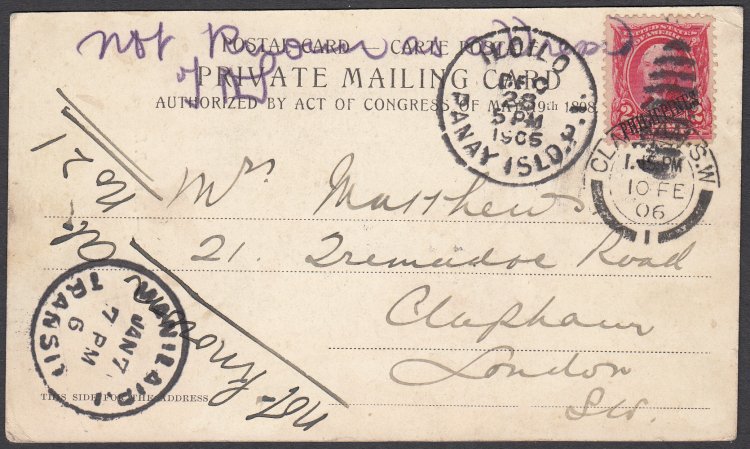 not known as address
of NS
POSTAL CARD — CARTE POSTALE
PRIVATE MAILING CARD
AUTHORIZED BY ACT OF CONGRESS OF MAY 19th 1898.
ILOILO
DEC
28
5 PM
1905
PANAY ISLD, P.I.
UNITED STATES
OF AMERICA
PHILIPPINES
2 2
CLAPHAM S.W
1.15 PM
10 FE
06
1
at no 21
not known
Mrs Matthews
21. Tremadoc Road
Clapham
London
SW.
MANILA P.I.
JAN 7
7 PM
6
TRANSIT
THIS SIDE FOR THE ADDRESS.